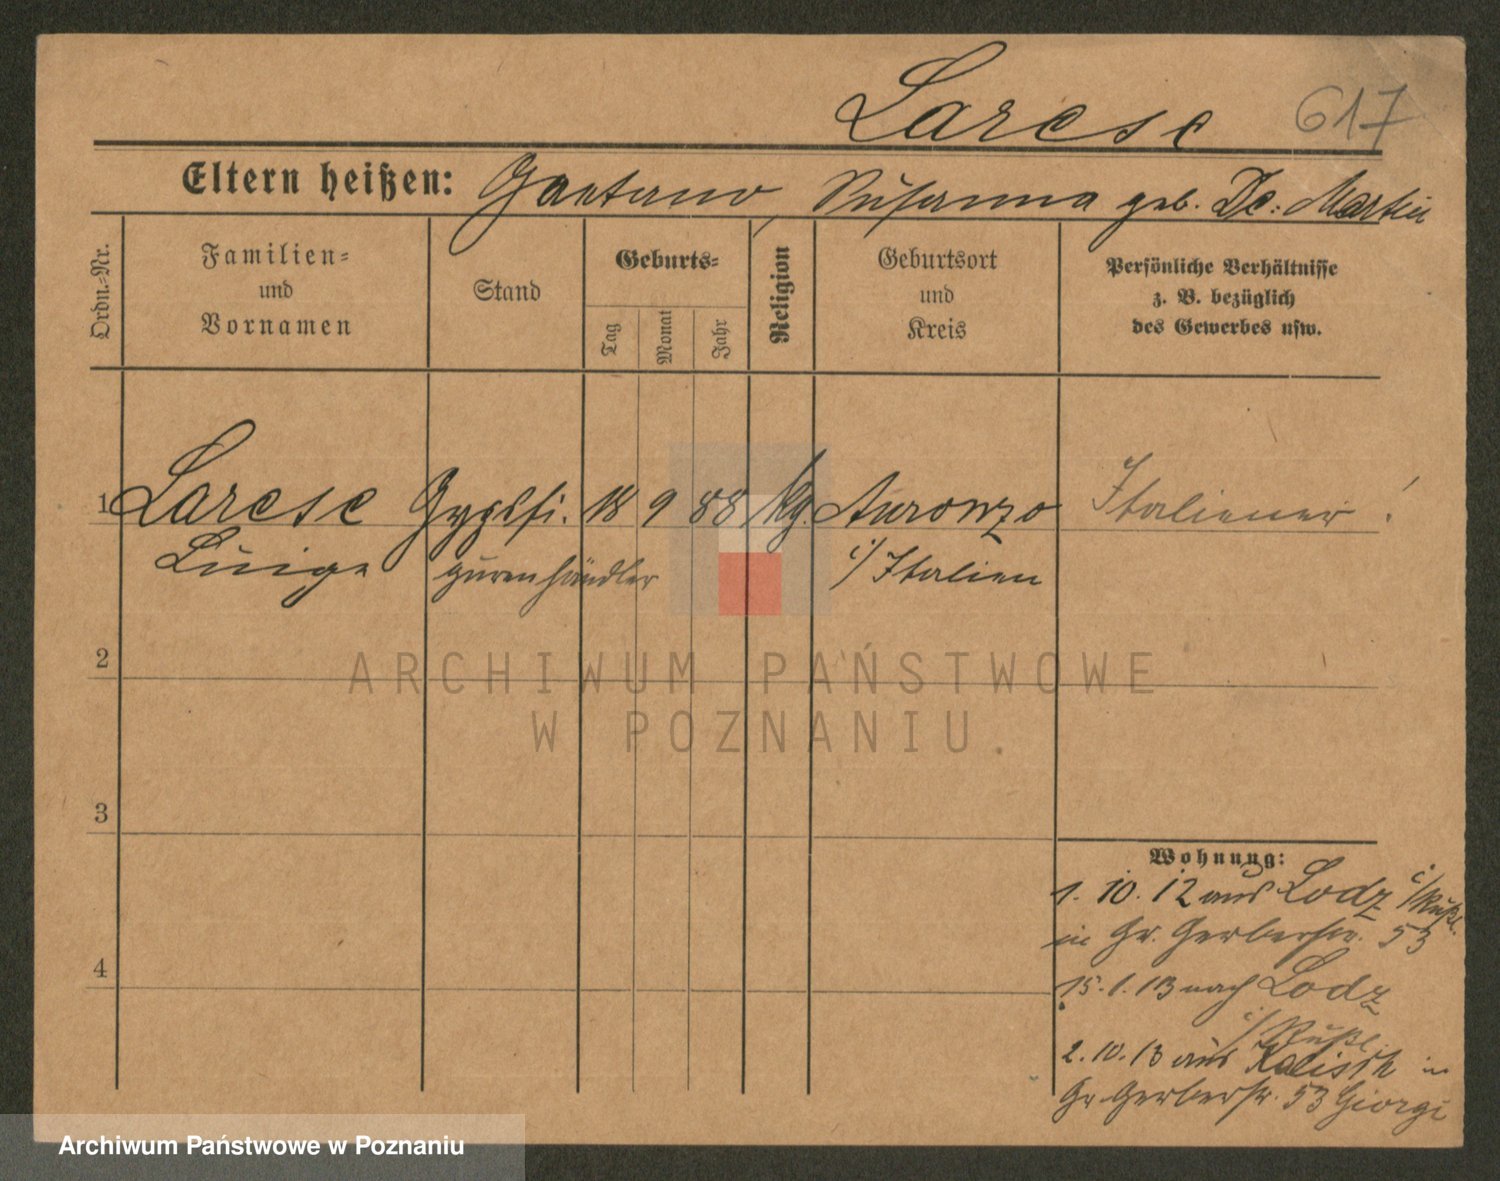 Larese 617
Eltern heißen: Gaetano Susanna geb. De: Martin
Ordn.=Nr.
Familien=
und
Vornamen
Stand
Geburts=
Tag
Monat
Jahr
Religion
Geburtsort
und
Kreis
Persönliche Verhältnisse
z. B. bezüglich
des Gewerbes usw.
1 Larese Gypsfi. 18 9 88 kg. Auronzo Italiener!
Luige gurenhändler i/Italien
2
3
4
Wohnung:
1. 10. 12 aus Lodz i/Rußl.
in Gr. Gerberstr. 53
15. 1. 13 nach Lodz
i/Rußl.
2. 10. 13 aus Kalisch in
Gr. Gerberstr. 53 Giorgi
ARCHIWUM PAŃSTWOWE
W POZNANIU.
Archiwum Państwowe w Poznaniu